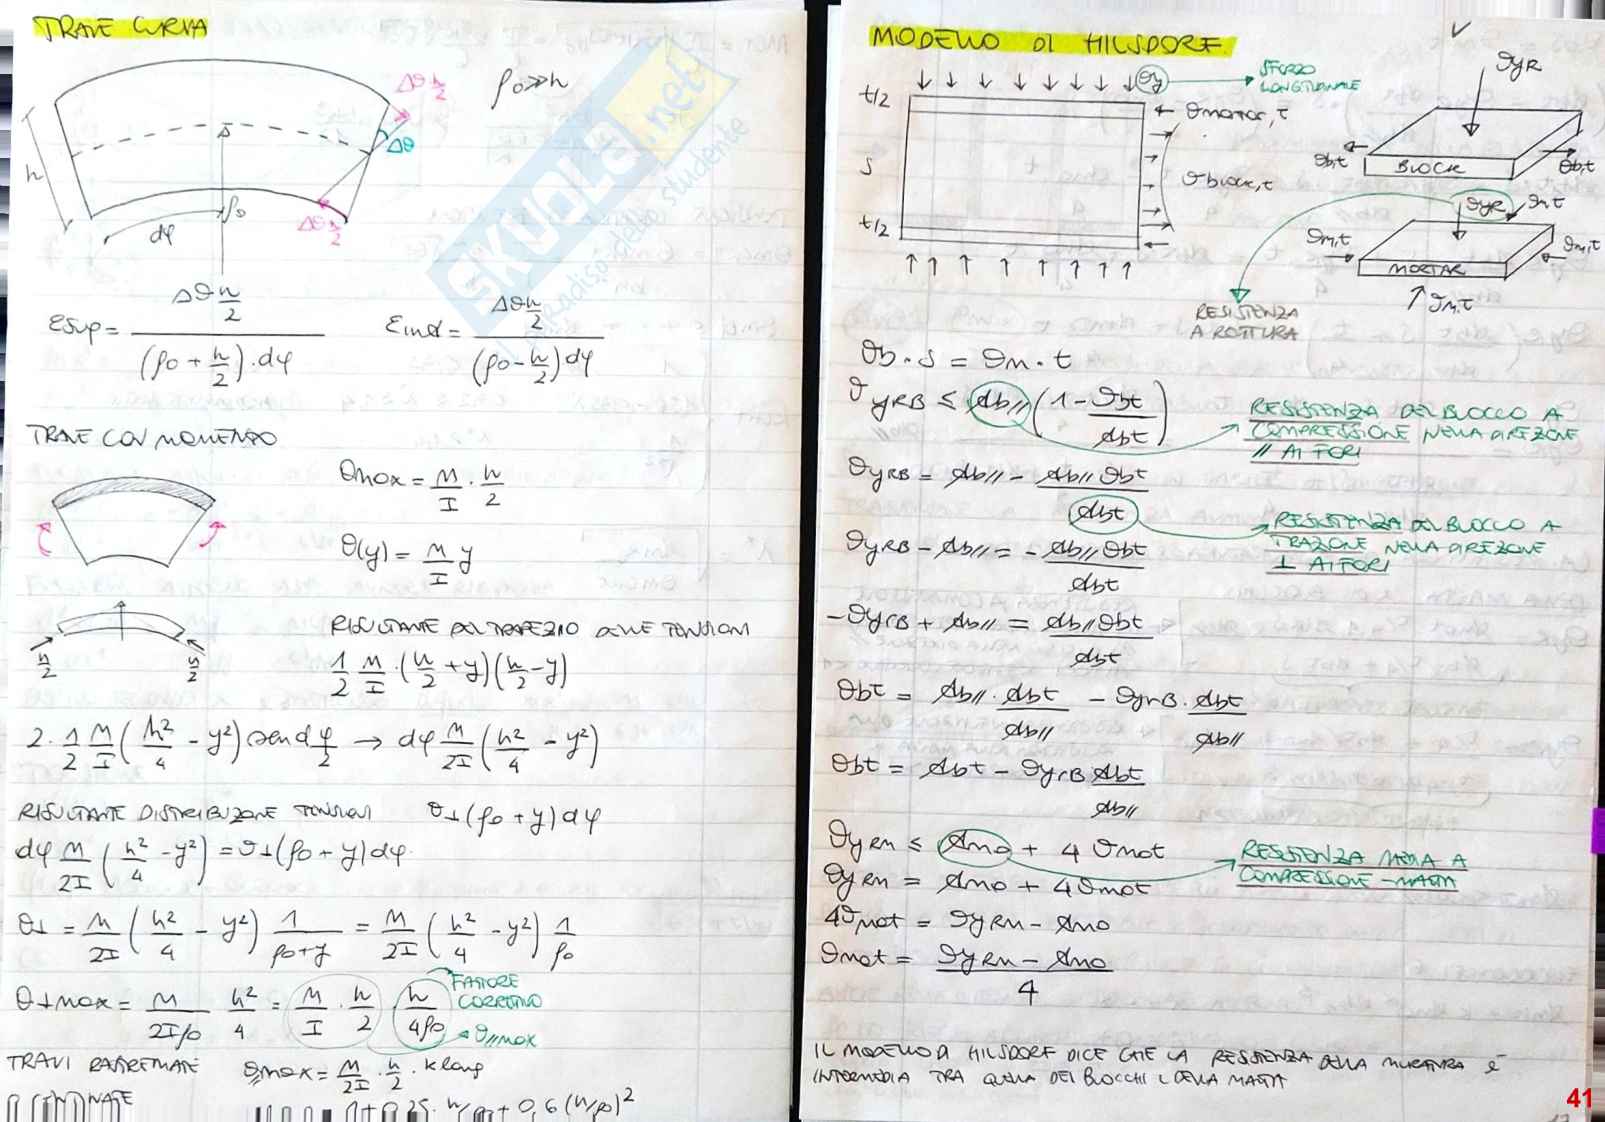 TRAVE CURVA
Δθ h/2
ρ0 >> h
Δθ
h
ρ0
Δθ h/2
dφ
εsup = Δθ h/2 / (ρ0 + h/2) · dφ
εinf = Δθ h/2 / (ρ0 - h/2) dφ
TRAVE CON MOMENTO
σmax = M/I · h/2
σ(y) = M/I y
RISULTANTE DEL TRAPEZIO DELLE TENSIONI
1/2 M/I · (h/2 + y)(h/2 - y)
2 · 1/2 M/I (h²/4 - y²) sen dφ/2 → dφ M/2I (h²/4 - y²)
RISULTANTE DISTRIBUZIONE TENSIONI σ⊥(ρ0 + y) dφ
dφ M/2I (h²/4 - y²) = σ⊥(ρ0 + y) dφ
σ⊥ = M/2I (h²/4 - y²) 1/ρ0+y = M/2I (h²/4 - y²) 1/ρ0
σ⊥max = M/2Iρ0 h²/4 = M/I · h/2 h/4ρ0
FATTORE
CORRETTIVO
σ//max
TRAVI RASTREMATE
σmax = M/2I · h/2 · K long
1 + 0,25 · h/ρ0 + 0,6 (h/ρ0)²
SKUOLA.net
il paradiso dello studente
MODELLO DI HILSDORF
σy
SFORZO
LONGITUDINALE
t/2
σmortar,t
s
σblock,t
t/2
σyR
σb,t
BLOCK
σb,t
σyR
σm,t
σm,t
MORTAR
σm,t
σm,t
RESISTENZA
A ROTTURA
σb · s = σm · t
σyRB ≤ fb// (1 - σbt/fbt)
RESISTENZA DEL BLOCCO A
COMPRESSIONE NELLA DIREZIONE
// AI FORI
σyRB = fb// - fb// σbt / fbt
RESISTENZA DEL BLOCCO A
TRAZIONE NELLA DIREZIONE
⊥ AI FORI
σyRB - fb// = - fb// σbt / fbt
-σyrB + fb// = fb// σbt / fbt
σbt = fb// · fbt/fb// - σyrB · fbt/fb//
σbt = fbt - σyrB fbt/fb//
σyRM ≤ fmo + 4 σmot
RESISTENZA MEDIA A
COMPRESSIONE - MALTA
σyRM = fmo + 4σmot
4σmot = σyRM - fmo
σmot = σyRM - fmo / 4
IL MODELLO DI HILSDORF DICE CHE LA RESISTENZA DELLA MURATURA È
INTERMEDIA TRA QUELLA DEI BLOCCHI E DELLA MALTA
41